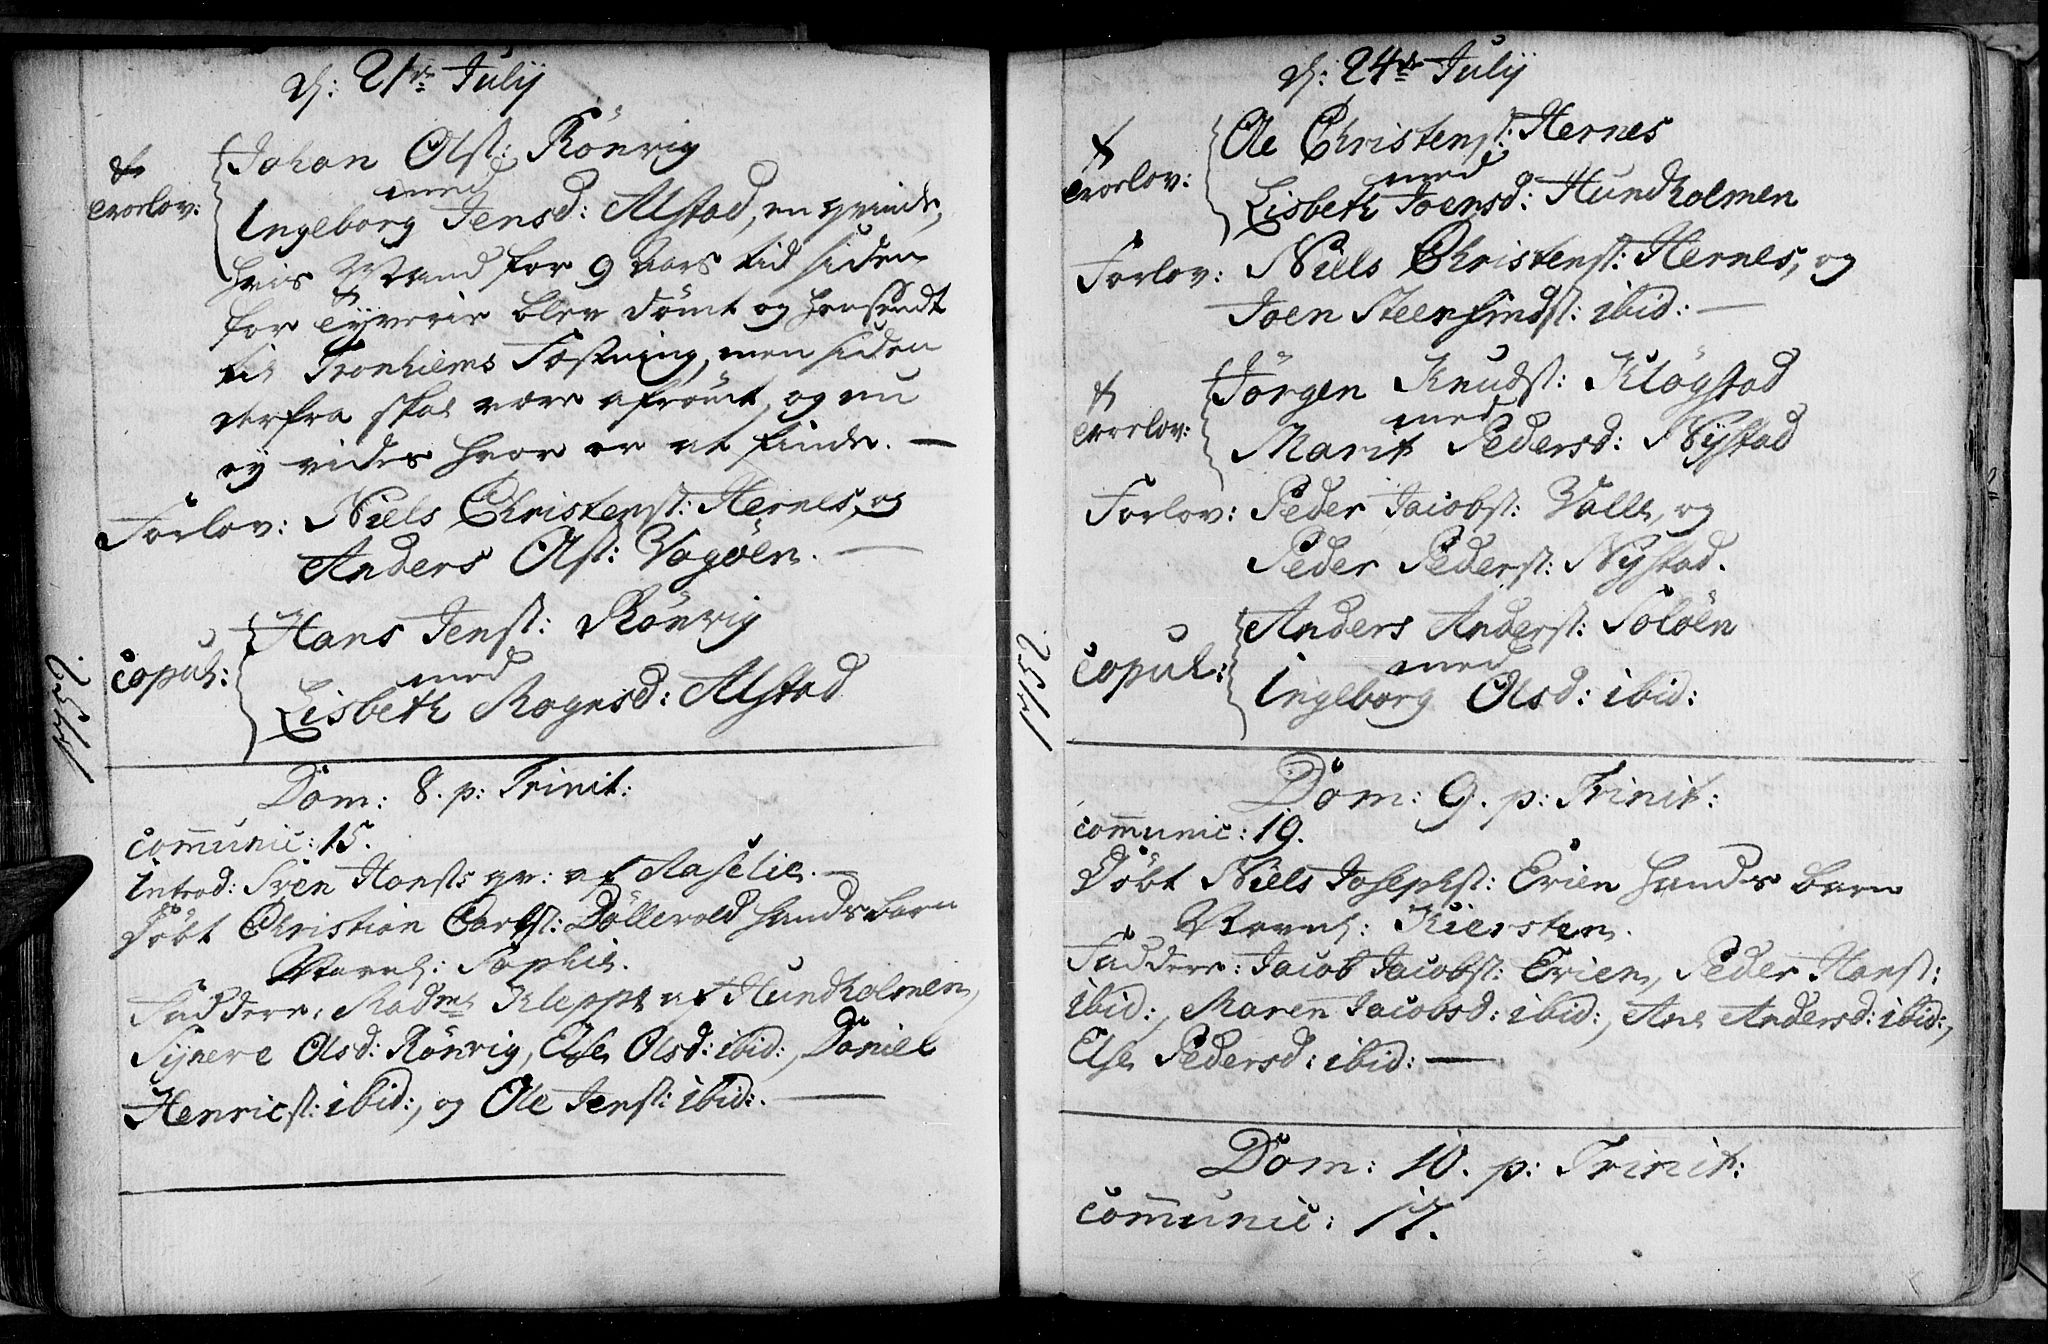 d: 21de Julij
Johan Olss: Rönvig
med
Trorlov: Ingeborg Jensd: Alstad, en qvinde,
hvis Mand for 9 Aars tid siden
for Tyverie blev dömt og hensendt
til Tronhiems Fæstning, men siden
derfra skal være afrömt, og nu
ey vides hvor er at finde. —
Forlov: Niels Christenss: Hernes, og
Anders Olss: Vagöen. —
Hans Jenss: Rönvig
Copul: med
Lisbeth Mognsd: Alstad
1752.
Dom: 8. p: Trinit:
Communic: 15.
Introd: Sven Hanss qv: af Maselie. —
Döbt Christian Carlss: Döllevold hands barn
Navnl: Sophie.
Faddere: Madme Klepp af Hundholmen,
Synere Olsd: Rönvig, Else Olsd: ibid:, Daniel
Henricss: ibid:, og Ole Jenss: ibid:. —
d: 24de Julij
Ole Christenss: Hernes
Trorlov: med
Lisbeth Joensd: Hundholmen
Forlov: Niels Christenss: Hernes, og
Joen Steenfindss: ibid: —
Jörgen Knudss: Klögstad
Trorlov: med
Marit Pedersd: Nÿstad
Forlov: Peder Jacobss: Valle, og
Peder Pederss: Nÿstad.
Anders Anderss: Solöen
Copul: med
Ingeborg Olsd: ibid:
1752.
Dom: 9. p: Trinit:
Communic: 19.
Döbt Niels Josephss: Evien hands barn
Navnl: Kiersten.
Faddere: Jacob Jacobss: Evien, Peder Hanss:
ibid:, Maren Jacobsd: ibid:, Ane Andersd: ibid:,
Else Pedersd: ibid: —
Dom: 10. p: Trinit:
Communic: 17.